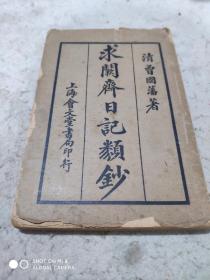 清曾國藩著
求闕齋日記類鈔
上海會文堂書局印行
SHOT ON MI 6
MI DUAL CAMERA